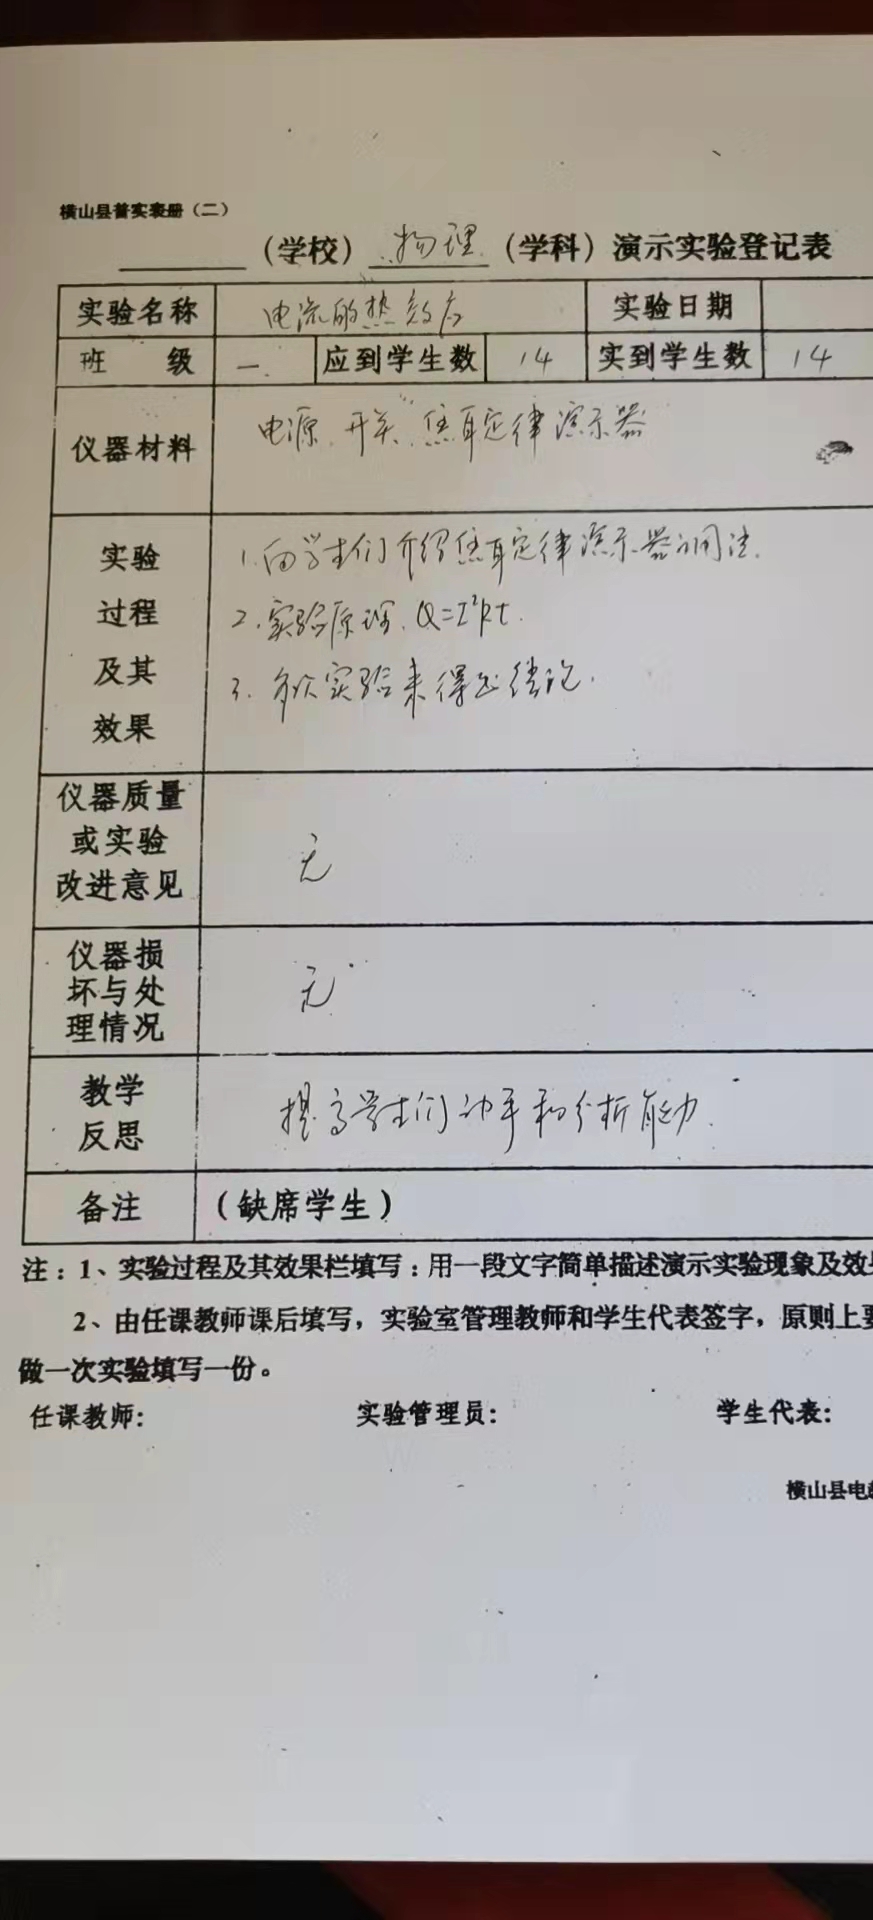 横山县普实表册（二）
（学校） 物理 （学科）演示实验登记表
实验名称 电流的热效应 实验日期
班 级 一. 应到学生数 14 实到学生数 14
仪器材料 电源、开关、焦耳定律演示器
实验过程及其效果
1.向学生们介绍焦耳定律演示器的用法.
2.实验原理、Q=I²Rt.
3.多次实验来得出结论.
仪器质量
或实验
改进意见
无
仪器损
坏与处
理情况
无
教学
反思
提高学生们动手和分析能力.
备注 （缺席学生）
注：1、实验过程及其效果栏填写：用一段文字简单描述演示实验现象及效
2、由任课教师课后填写，实验室管理教师和学生代表签字，原则上要
做一次实验填写一份。
任课教师: 实验管理员: 学生代表:
横山县电